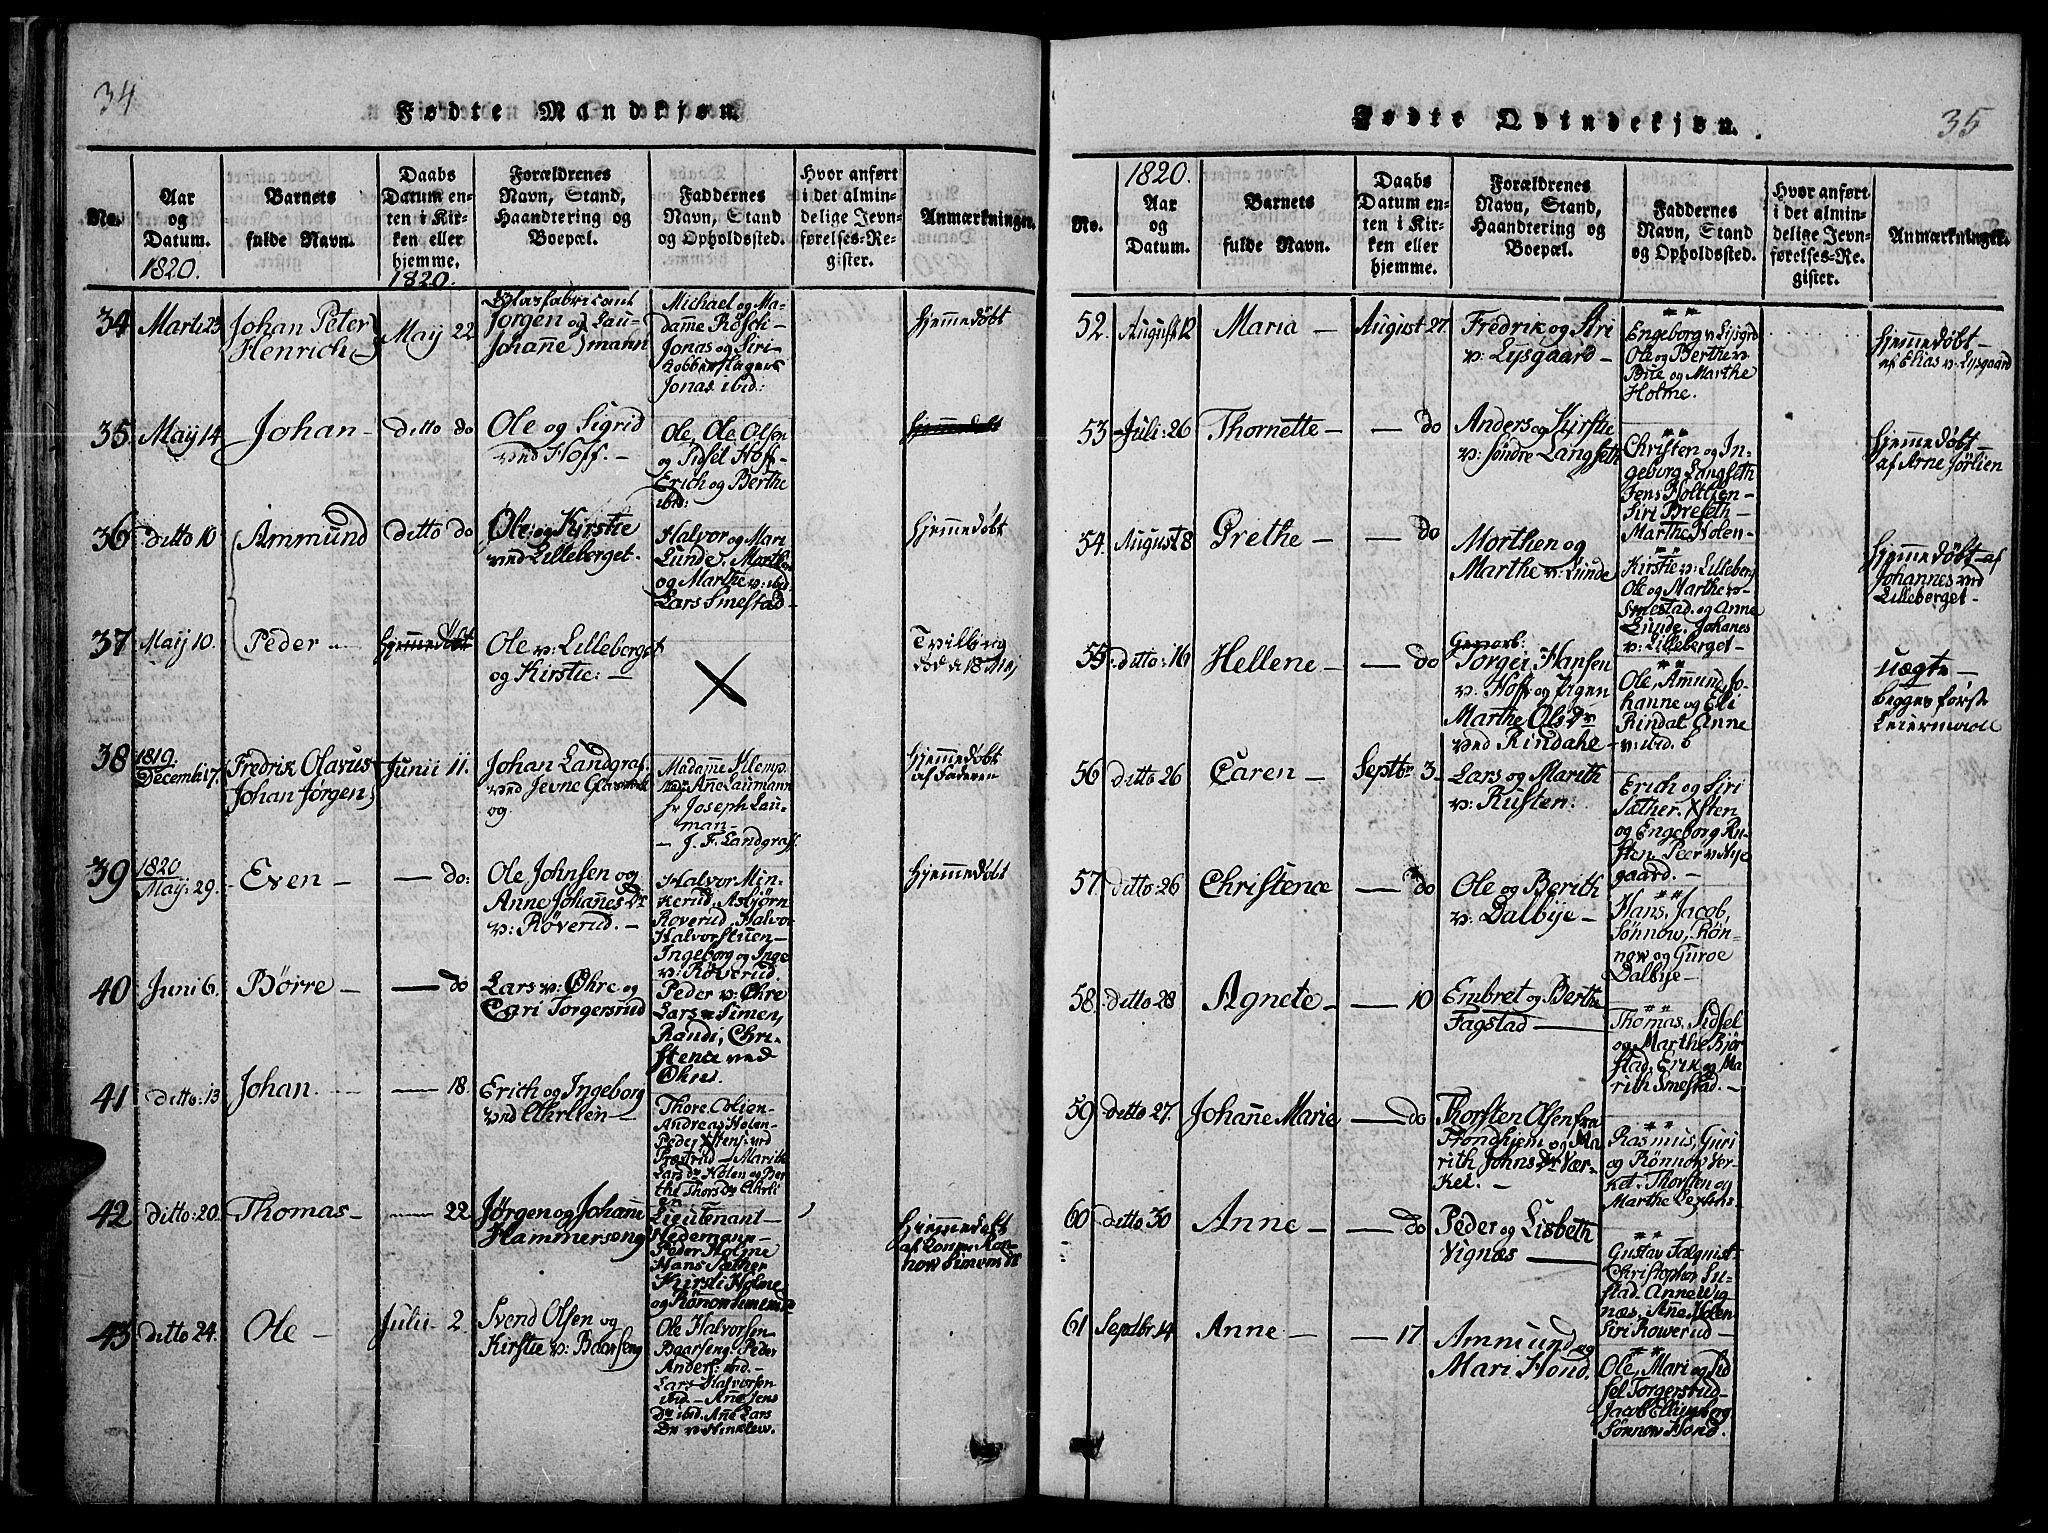 34
Fødte Mandkjøn.
No.
Aar
og
Datum.
1820.
Barnets
fulde Navn.
Daabs
Datum en-
ten i Kir-
ken eller
hjemme.
1820.
Forældrenes
Navn, Stand,
Haandtering og
Boepæl.
Faddernes
Navn, Stand
og Opholdssted.
Hvor anført
i det almin-
delige Jevn-
førelses-Re-
gister.
Anmærkninger.
34
Marti 23
Johan Peter
Henrich
May 22
Glasfabricant
Jørgen og Lau-
Johanne mann
Michael og Ma-
damme Røscli-
Jonas og Siri
Kobberslager
Jonas ibid:
hjemmedøbt
35
May 14
Johan -
ditto do
Ole og Sigrid
ved Hoff. -
Ole, Ole Olsen
og Sidsel Hoff-
Erich og Berthe
ibid:
36
ditto 10
Ammund
ditto do
Ole og Kirstie
ved Lilleberget. -
Halvor og Mari
Lunde. Marthe
og Marthe v: ibid
Lars Smestad -
hjemmedøbt
37
May 10.
Peder
hjemmedøbt
Ole v: Lilleberget
og Kirstie: -
Tvilling
død d 18 Maj
38
1819.
Decemb: 17.
Fredrik Olavus
Johan Jørgen
Junii 11.
Johan Landgraf
ved Jevne Glasværk
og
Madamme Klemp.
Ane Laumann
Joseph Lau-
man -
- J. F. Landgraff.
hjemmedøbt
af Faderen
39
1820
May: 29.
Even -
- do:
Ole Johnsen og
Anne Johannes Dr
v: Røverud. -
Halvor Min-
kerud, Asbjørn
Roverud, Halvor
Halvorstuen -
Ingeborg og Inge
v: Røverud
hjemmedøbt
40
Juni 6.
Børre -
- do
Lars v: Øhre og
Cari Torgersrud
Peder v: Øhre
Lars Simen,
Randi, Chri-
stence ved
Øhre.
41
ditto: 13
Johan.
- 18.
Erich og Ingeborg
ved Ahrlien -
Thore Colien -
Andreas Holen -
Peder Xstens: ved
Præstrud - Marith
Lars Dr Holen og Ber
the Thors Dr Ahrli
en
42
ditto: 20.
Thomas -
- 22.
Jørgen og Johanne
Hammerseng
Lieutenant -
Hedemann -
Peder Holme
Hans Sæther
Kirsti Holme
og Rønnow Simenstad
hjemmedøbt
43
ditto 24.
Ole -
Julii 2.
Svend Olsen og
Kirstie v: Baarseng
Ole Halvorsen
Baarseng. Peder
Anders: ibid. -
Lars Halvorsen
ibid. - Anne Jens
Dr ibid. Anne Lars
Dr v: Hinklew.
35
Fødte Qvindekjøn.
No.
1820.
Aar
og
Datum.
Barnets
fulde Navn.
Daabs
Datum en-
ten i Kir-
ken eller
hjemme.
Forældrenes
Navn, Stand,
Haandtering og
Boepæl.
Faddernes
Navn, Stand
og Opholdssted.
Hvor anført
i det almin-
delige Jevn-
førelses-Re-
gister.
Anmærkninger.
52.
August: 12
Maria -
August 27.
Fredrik og Siri
v: Lysgaard -
Engeborg v: Lysgrd
Ole og Berthe v:
Bue og Marthe
Holme.
hjemmedøbt -
af Elias v: Lysgaard
53
Juli: 26
Thornette -
- do
Anders og Kirstie
v: Søndre Langseth
Christen og In-
geborg Langseth
Jens Holtlien -
Siri Breseth -
Marthe Holen -
hjemmedøbt
af Arne Jørlien
54.
August 8
Grethe -
- do
Morthen og
Marthe v: Lunde
Kirstie v: Lilleberg
Ole og Marthe v:
Smestad. og Anne
Lunde. Johanes
v: Lilleberget -
hjemmedøbt - af
Johannes ved
Lilleberget -
55
ditto: 16
Hellene -
- do
Torger Hansen
v: Hoff og Pigen
Marthe Ols Dr
ved Rindahe -
Ole, Amund, Jo-
hanne og Eli
Rindal. Anne
v: ibid.
uægte -
begges første
Leiermaal
56
ditto 26
Caren -
Septbr 3.
Lars og Marith
v: Rusten:
Erich og Siri
Sæther. Xsten
og Engeborg Ru-
sten. Peer v: Nye
gaard. -
57.
ditto: 26
Christence
- do
Ole og Berith
v: Dalbye -
Hans, Jacob,
Sønnow, Røn-
now og Guroe
Dalbye -
58.
ditto 28
Agnete -
- 10
Embret og Berthe
Fagstad -
Thomas, Sidsel
og Marthe Bjør
stad, Erik og Ma
rith Smestad. -
59
ditto 27.
Johanne Marie
- do
Thorsten Olsen fra
Trondhjem og Ma
rith Johns Dr Vær-
ket. -
Rasmus, Guri
og Rønnow Ver-
ket. Thorsten og
60
ditto 30
Anne -
- do
Peder og Lisbeth
Vignæs -
Gustav Falquist
Christopher Su-
stad. Anne Vig-
næs, Ane Holen
Siri Rowerud -
61
Septbr. 14
Anne -
- 17
Ammund og
Mari Hond.
Ole, Mari og Sid
sel Torgerstud -
Jacob Ellingberg
Sønnow Hond.